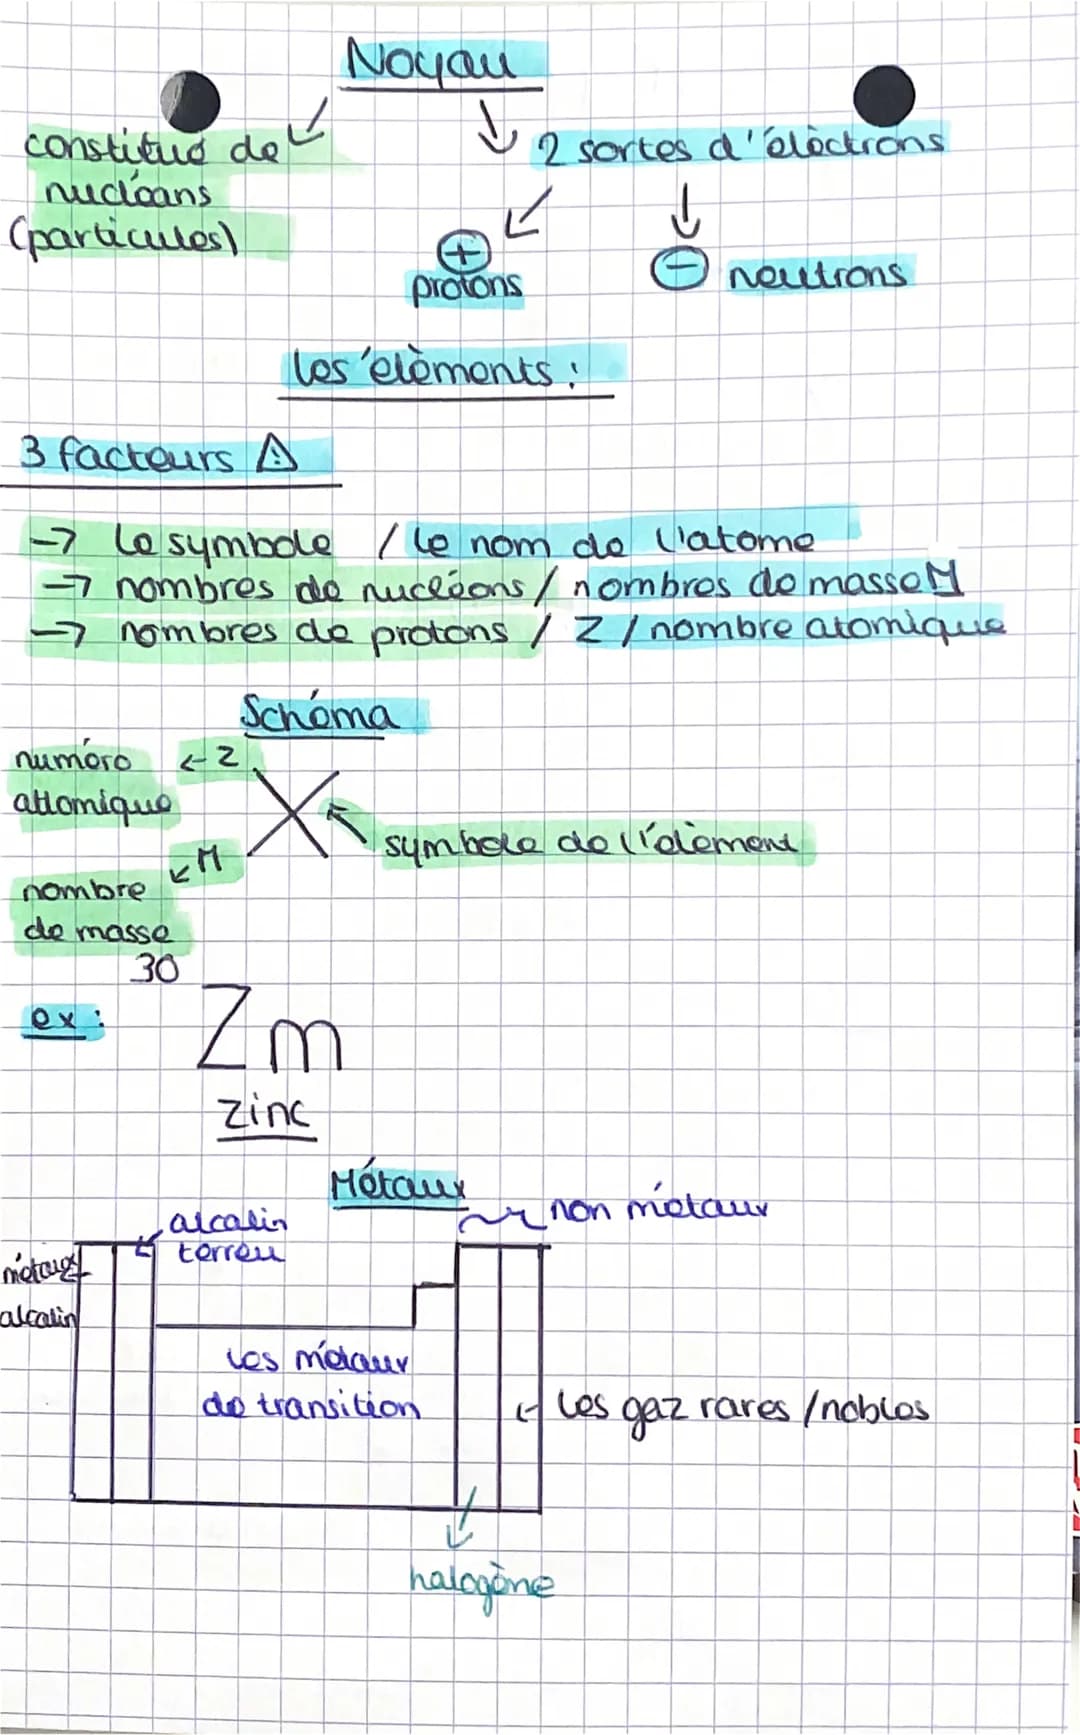 Noyau
constitué de
nucléons
(particules)
2 sortes d'éléctrons
+
protons
- neutrons
les élèments :
3 facteurs ⚠
→ le symbole / le nom de l'atome
→ nombres de nucléons / nombres de masse M
→ nombres de protons / Z / nombre atomique
Schéma
numéro ← Z
attomique
X
symbole de l'élèment
↙ M
nombre
de masse
30
ex :
Zm
zinc
Métaux
non métaux
alcalin
terreu
métaux
alcalin
les métaux
de transition
← les gaz rares / nobles
halogène